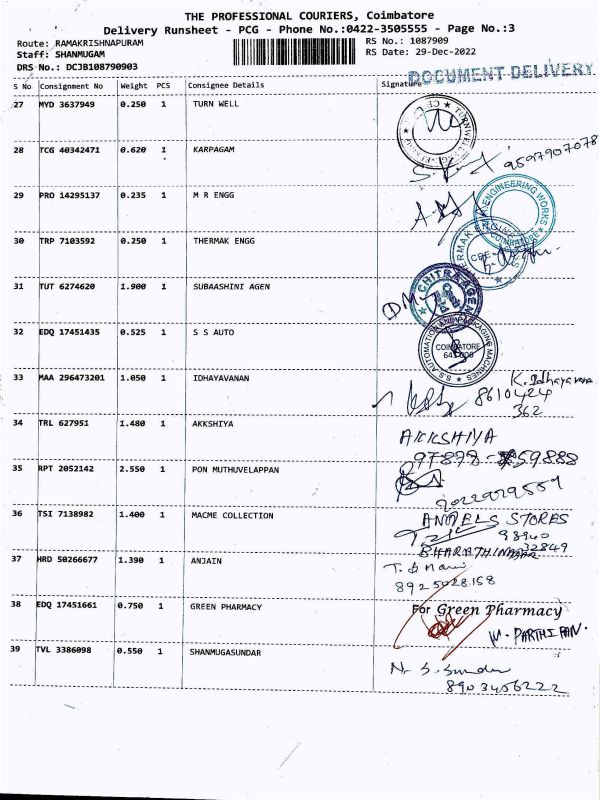 THE PROFESSIONAL COURIERS, Coimbatore
Delivery Runsheet - PCG - Phone No.:0422-3505555 - Page No.:3
Route: RAMAKRISHNAPURAM
Staff: SHANMUGAM
DRS No.: DCJB108790903
RS No.: 1087909
RS Date: 29-Dec-2022
DOCUMENT DELIVERY
S No Consignment No Weight PCS Consignee Details Signature
27 MYD 3637949 0.250 1 TURN WELL
28 TCG 40342471 0.620 1 KARPAGAM
9597907078
29 PRO 14295137 0.235 1 M R ENGG
ENGINEERING WORKS
COIMBATORE
30 TRP 7103592 0.250 1 THERMAK ENGG
31 TUT 6274620 1.900 1 SUBAASHINI AGEN
CHITRA AGEN
32 EDQ 17451435 0.525 1 S S AUTO
S.S. AUTOMATION AND PACKAGING MACHINES
COIMBATORE
641 006
33 MAA 296473201 1.050 1 IDHAYAVANAN
K. Idhayavana
8610424
362
34 TRL 627951 1.480 1 AKKSHIYA
AKKSHIYA
97878-59888
35 RPT 2052142 2.550 1 PON MUTHUVELAPPAN
36 TSI 7138982 1.400 1 MACME COLLECTION
ANGELS STORES
98940
32849
37 HRD 50266677 1.390 1 ANJAIN
T. S Mani
8925028158
38 EDQ 17451661 0.750 1 GREEN PHARMACY
For Green Pharmacy
M. PARTHIPAN.
39 TVL 3386098 0.550 1 SHANMUGASUNDAR
N. S. Sundar
8903456222